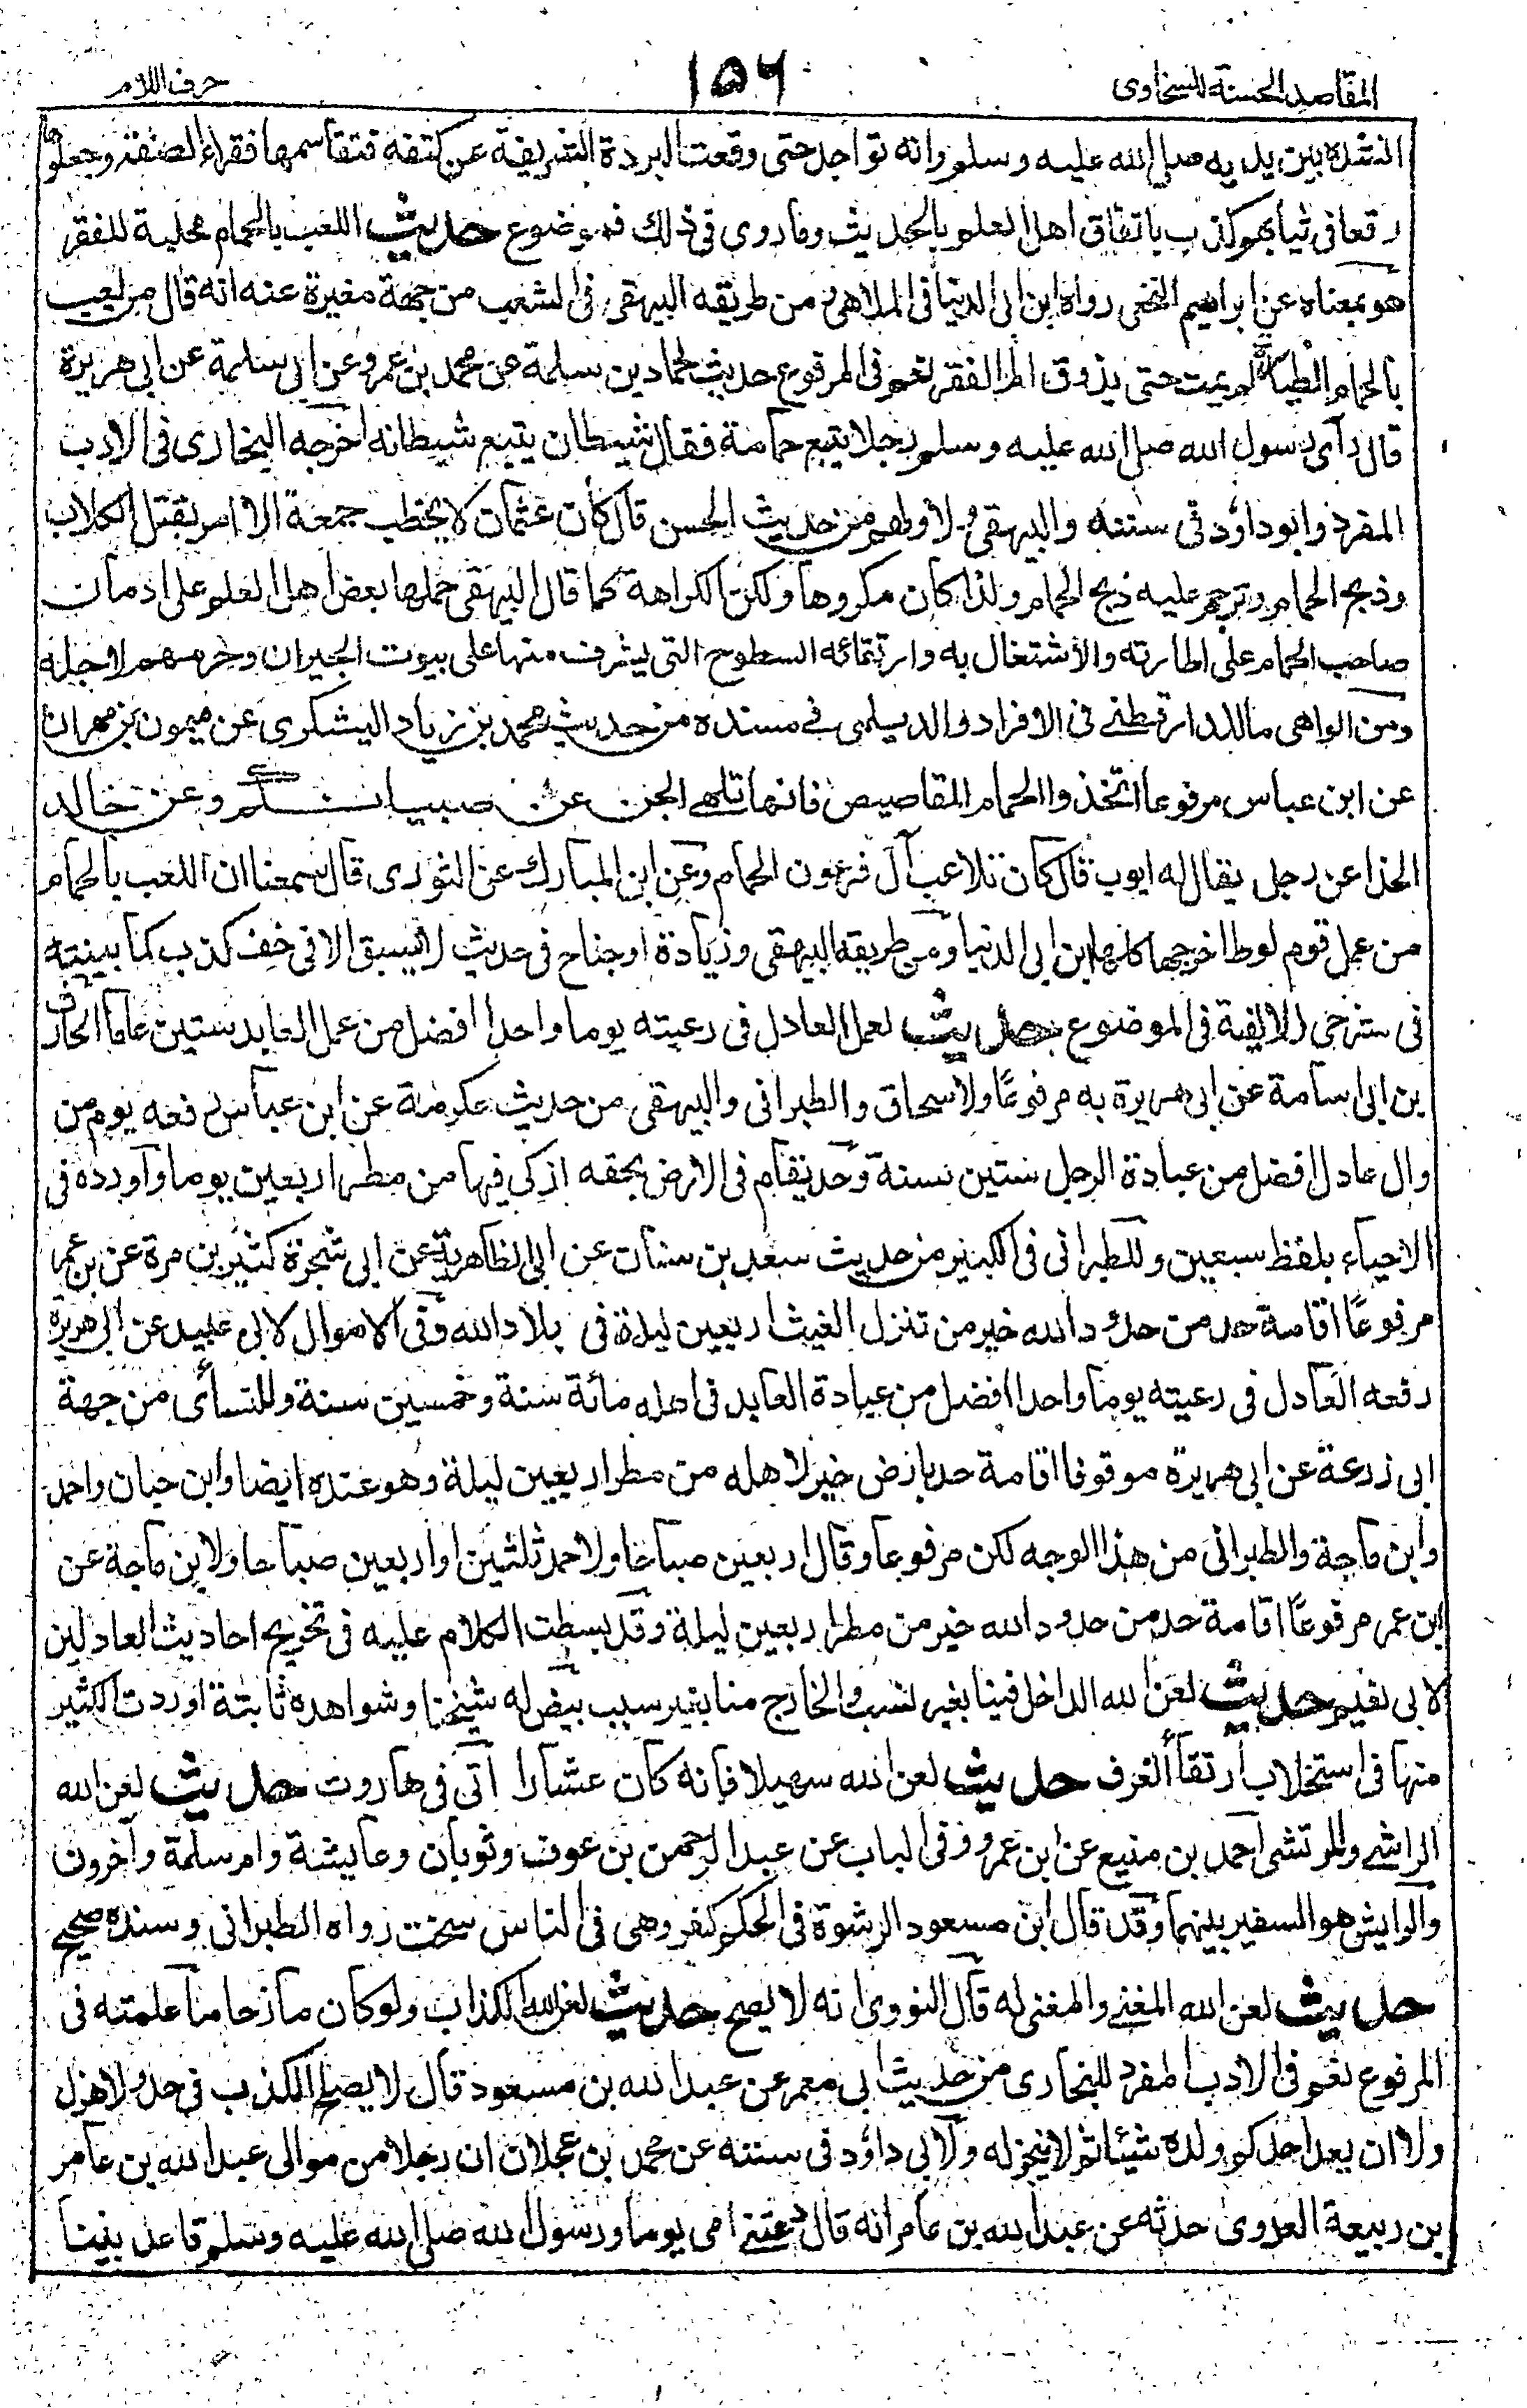 المقاصد الحسنة للسخاوى
١٥٦
حرف اللام
انشد بين يديه صلى الله عليه وسلم وانه تواجد حتى وقعت البردة الشريفة عن كتفه فتقاسمها فقراء الصفة وجعلوها
رقعا فى ثيابهم كذب باتفاق اهل العلم بالحديث وما روى فى ذلك فموضوع حديث اللعب بالحمام مجلبة للفقر
هو بمعناه عن ابراهيم النخعى رواه ابن ابى الدنيا فى الملاهى من طريقه البيهقى فى الشعب من جهة مغيرة عنه انه قال من لعب
بالحمام الطيارة لم يمت حتى يذوق الم الفقر نعم فى المرفوع حديث لحماد بن سلمة عن محمد بن عمرو عن ابى سلمة عن ابى هريرة
قال رأى رسول الله صلى الله عليه وسلم رجلا يتبع حمامة فقال شيطان يتبع شيطانه اخرجه البخارى فى الادب
المفرد وابو داود فى سننه والبيهقى من حديث الحسن قال كان عثمان لا يخطب جمعة الا امر بقتل الكلاب
وذبح الحمام وترجم عليه ذبح الحمام ولذا كان مكروها ولكن الكراهة كما قال البيهقى حملها بعض اهل العلم على ادمان
صاحب الحمام على اطارته والاشتغال به وارتقائه السطوح التى يشرف منها على بيوت الجيران وحرمهم لاجله
ومن الواهى ما للدارقطنى فى الافراد والديلمى فى مسنده من حديث محمد بن زياد اليشكرى عن ميمون بن مهران
عن ابن عباس مرفوعا اتخذوا الحمام المقاصيص فانها تلهى الجن عن صبيانكم وعن خالد
الحذا عن رجل يقال له ايوب قال كان تلاعب آل فرعون الحمام وعن ابن المبارك عن الثورى قال سمعنا ان اللعب بالحمام
من عمل قوم لوط اخرجها كلها ابن ابى الدنيا ومن طريقه البيهقى وزيادة او جناح فى حديث لا سبق الا فى خف كذب كما بينته
فى شرحى للالفية فى الموضوع حديث لعمل العادل فى رعيته يوما واحدا افضل من عمل العابد ستين عاما الحارث
بن ابى اسامة عن ابى هريرة به مرفوعًا ولاسحاق والطبرانى والبيهقى من حديث عكرمة عن ابن عباس رفعه يوم من
وال عادل افضل من عبادة الرجل ستين سنة وحد يقام فى الارض بحقه ازكى فيها من مطر اربعين يوما واورده فى
الاحياء بلفظ سبعين وللطبرانى فى الكبير من حديث سعيد بن سنان عن ابى الظاهرية عن ابى شجرة كثير بن مرة عن بن عمر
مرفوعًا اقامة حد من حدود الله خير من تنزل الغيث اربعين ليلة فى بلاد الله وفى الاموال لابى عبيد عن ابى هريرة
رفعه العادل فى رعيته يوما واحدا افضل من عبادة العابد فى اهله مائة سنة وخمسين سنة وللنسأى من جهة
ابى زرعة عن ابى هريرة موقوفا اقامة حد بارض خير لاهله من مطر اربعين ليلة وهو عنده ايضا وابن حبان واحمد
وابن ماجة والطبرانى من هذا الوجه لكن مرفوعا وقال اربعين صباحا ولاحمد ثلثين او اربعين صباحا ولابن ماجة عن
ابن عمر مرفوعًا اقامة حد من حدود الله خير من مطر اربعين ليلة وقد بسطت الكلام عليه فى تخريج احاديث العادلين
لابى نعيم حديث لعن الله الداخل فينا بغير نسب والخارج منا بغير سبب بيض له شيخنا وشواهده ثابتة اوردت الكثير
منها فى استجلاب ارتقأ الغرف حديث لعن الله سهيلا فانه كان عشارا آتى فى هاروت حديث لعن الله
الراشى والمرتشى احمد بن منيع عن ابن عمرو وفى الباب عن عبد الرحمن بن عوف وثوبان وعايشة وام سلمة وآخرون
والرايش هو السفير بينهما وقد قال ابن مسعود الرشوة فى الحكم كفر وهى فى الناس سحت رواه الطبرانى وسنده صحيح
حديث لعن الله المغنى والمغنى له قال النووى انه لا يصح حديث لعن الله الكذاب ولو كان مازحا ما علمته فى
المرفوع نعم فى الادب المفرد للبخارى من حديث ابى معمر عن عبد الله بن مسعود قال لا يصلح الكذب فى جد ولا هزل
ولا ان يعد احدكم ولده شيئا ثم لا ينجز له ولابى داود فى سننه عن محمد بن عجلان ان رجلا من موالى عبد الله بن عامر
بن ربيعة العدوى حدثه عن عبد الله بن عامر انه قال دعتنى امى يوما ورسول الله صلى الله عليه وسلم قاعد بيننا